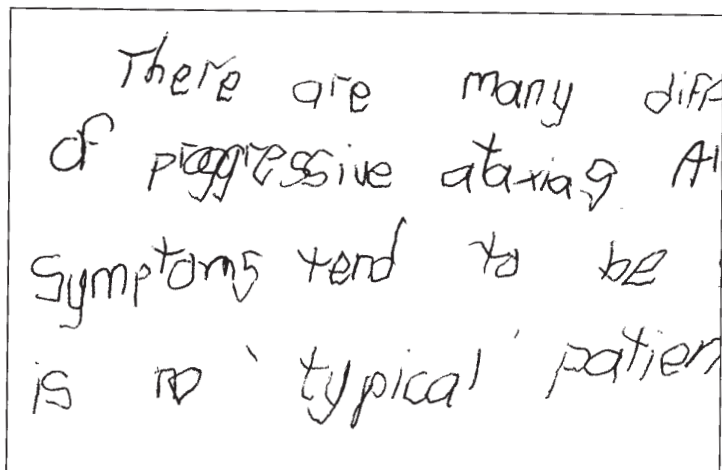 There are many diff
of progressive ataxias Al
symptoms tend to be
is no 'typical' patien